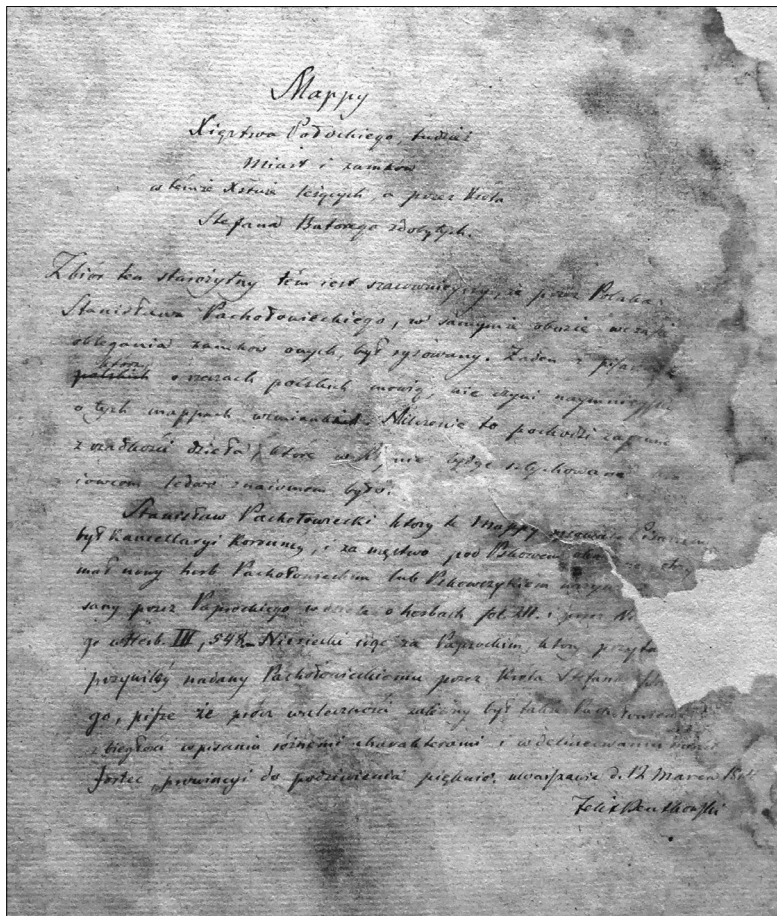 Mappy
Xięztwa Połockiego, tudzież
Miast i zamków
w temże Xstwie leżących, a przez Króla
Stefana Batorego zdobytych.
Zbiór ten starożytny tém iest szacownieyszy, że przez Polaka
Stanisława Pachołowieckiego, w samymże obozie wczasie
oblegania zamków onych, był rysowany. Żaden z pisarzy
którzy
polskich o rzeczach polskich mówią, nie czyni naymnieyszey
o tych mappach wzmianki. Milczenie to pochodzi zapewne
z rzadkości dzieła, które w R, nie będąc sztychowane
iowcom ledwo znaiomem było.
Stanisław Pachołowiecki który te Mappy rysował Pisarzem
był Kancellaryi Koronney, i za męstwo pod Pskowem
mał nowy herb Pachołowieckim lub Pskowczykiem
sany przez Paprockiego w dziele o herbach fol. i przez
go w Herb. III, 548. Niesiecki idąc za Paprockim, który przyta
przywiley nadany Pachołowieckiemu przez Króla Stefana
go, pisze że prócz waleczności zalecony był także Pachołowiecki
z biegłości w pisaniu różnemi charakterami i w delineowaniu
fortec, prowincyi do podziwienia pięknie. w Warszawie d. 12 Marca
Felix Bentkowski